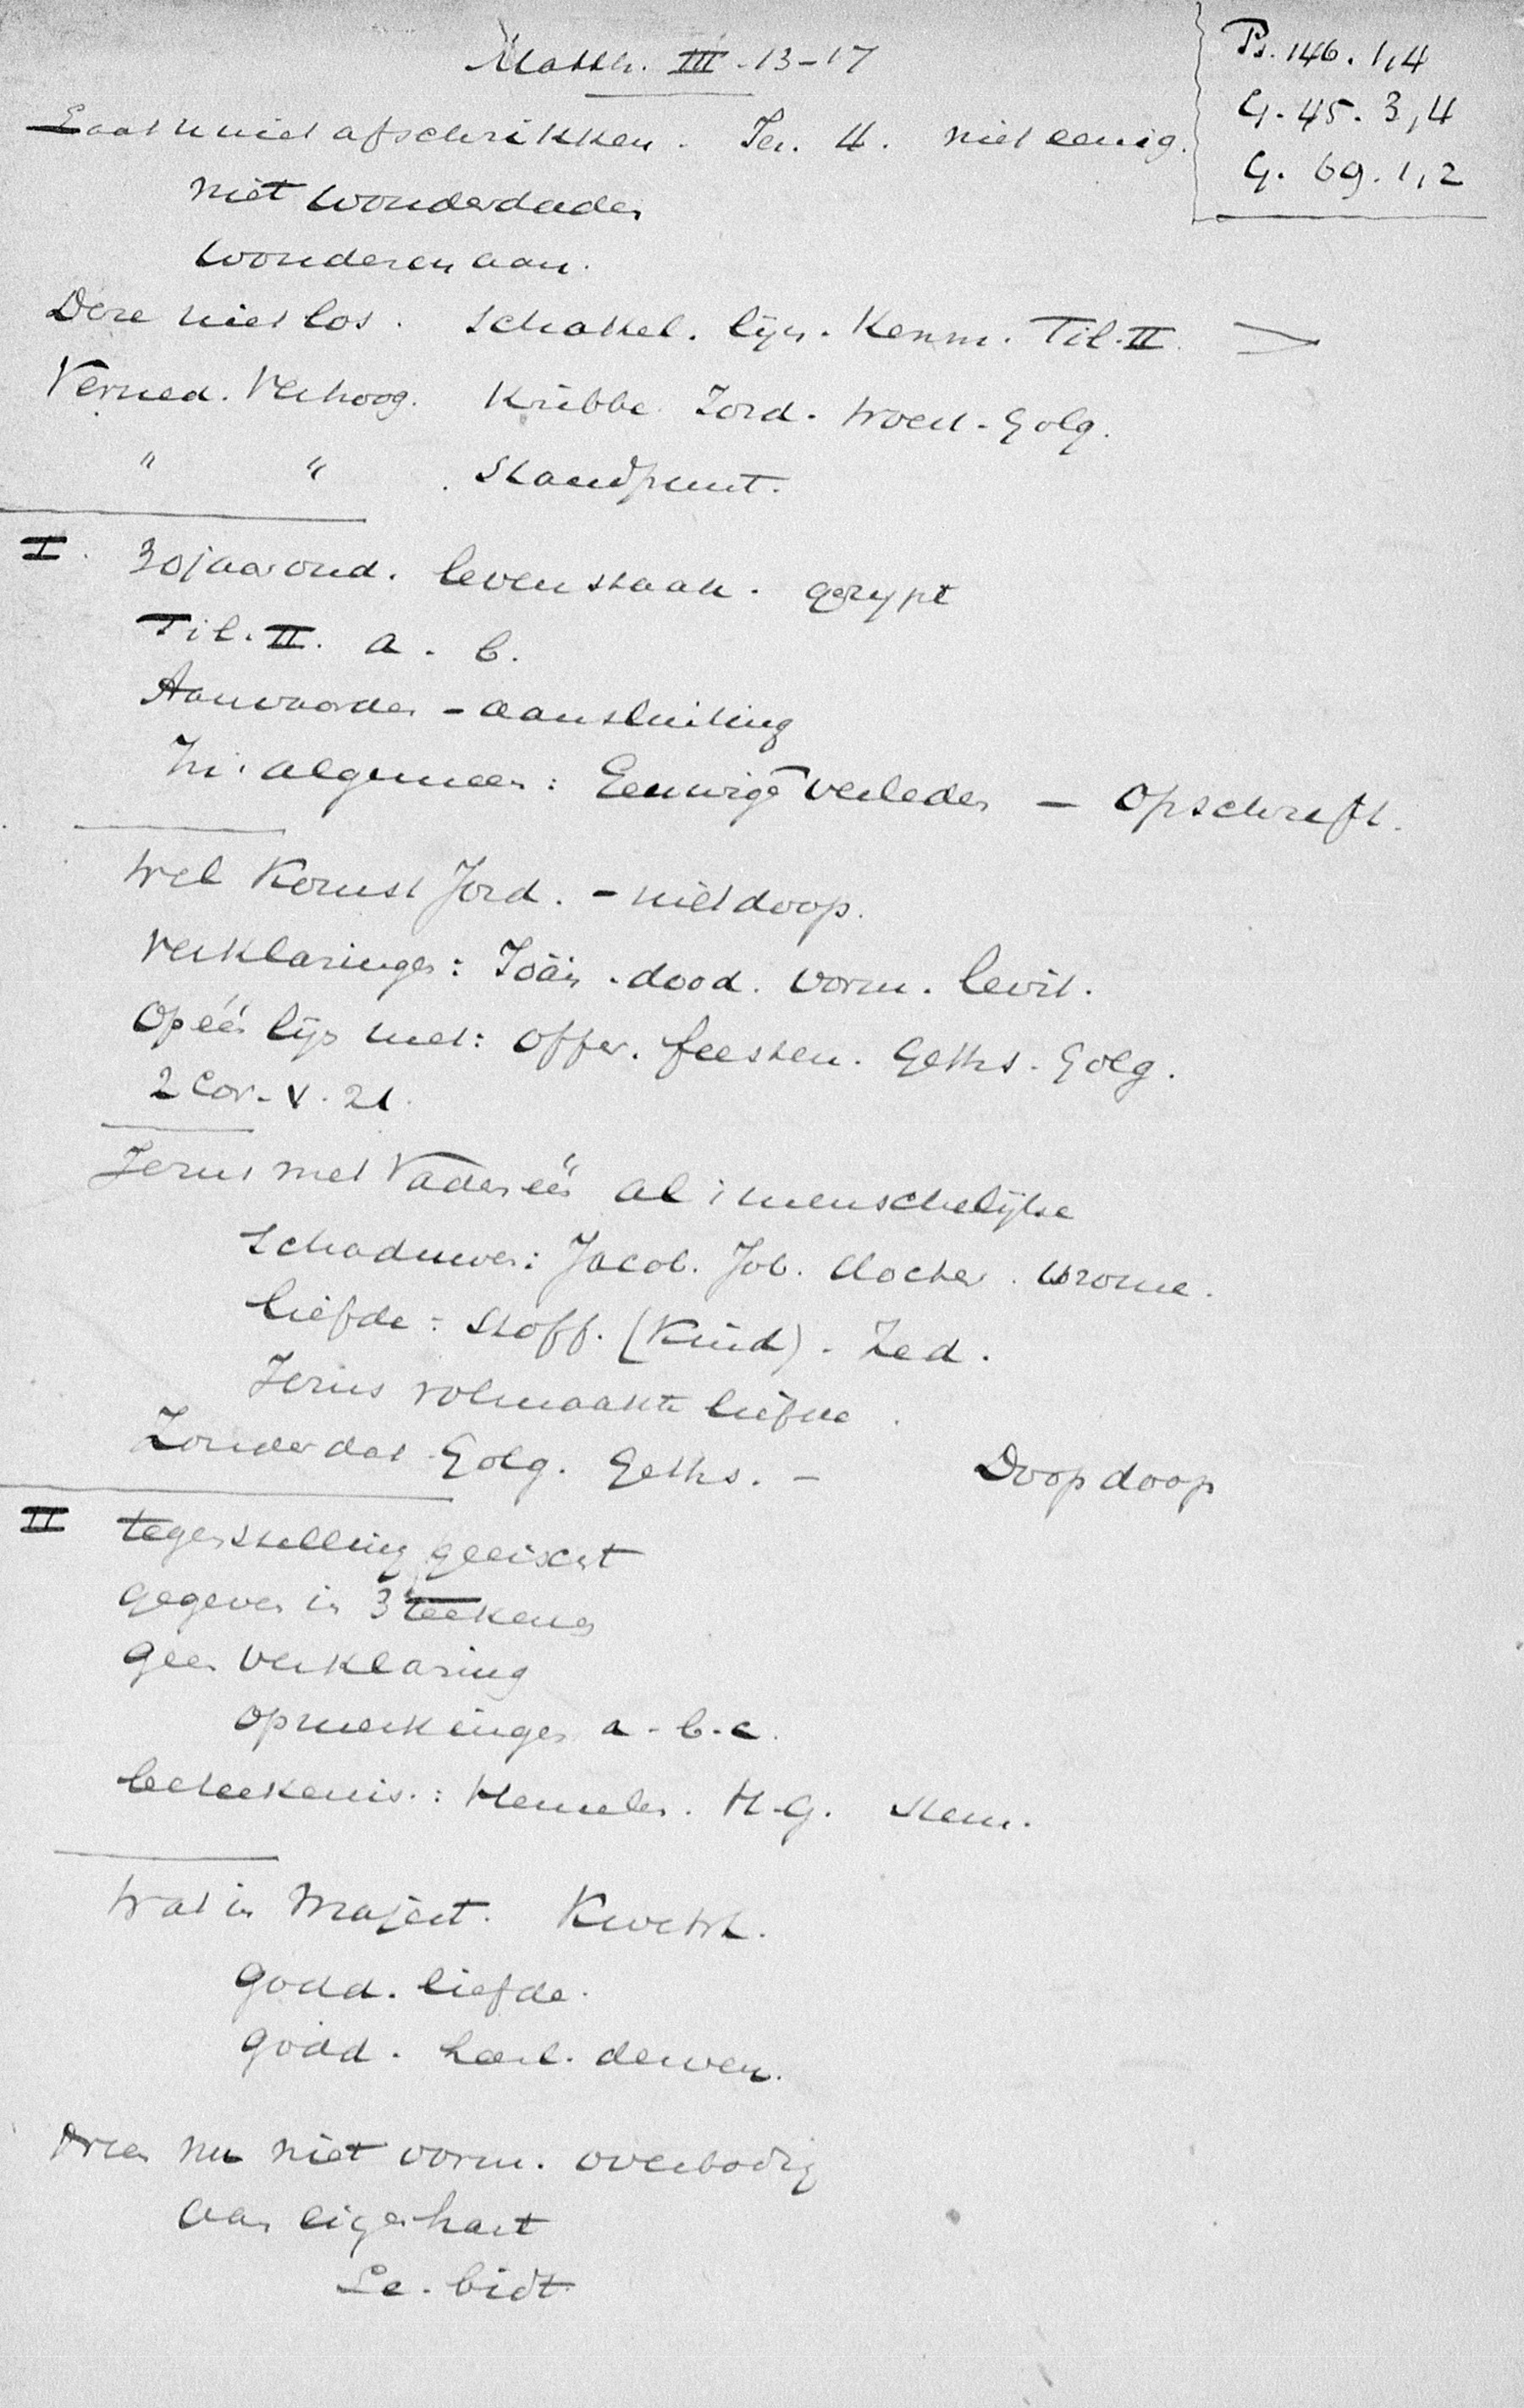 Matth. III - 13-17
Ps. 146. 1,4
G. 45. 3,4
G. 69. 1,2
Laat u niet afschrikken. Ter. H. niet eenig.
niet wonderdaden
wonderen aan.
Deze niet los. Schakel. lijn. Kenm. Til. II
Verned. Verhoog. Kribbe. Jord. woest. Golg.
" " . Standpunt.
I. 30 jaar oud. levenstaak. gerypt
Til. II. a. b.
Aanvaarden - aansluiting
In 't algemeen: Eeuwige verleden — Opschrift.
Wel Komst Jord. - niet doop.
Verklaringen: Joän. dood. vorm. levit.
Op één lijn met: Offer. feesten. Geths. Golg.
2 Cor. V. 21.
Jezus met Vader één al 't menschelijke
Schaduwen: Jacob. Job. Moeder. Vrome.
liefde: Stoff. (Kind). Zed.
Jezus volmaakte liefde.
Zonder dat Golg. Geths. - Doop doop
II tegenstelling geëischt
gegeven in 3 teekens
geen verklaring
opmerkingen a. b. c.
beteekenis.: Hemelen. H. G. Stem.
Wat in Majest.
godd. liefde.
godd. heerl. derven.
nu niet vorm. overbodig
aan eigen hart
bidt